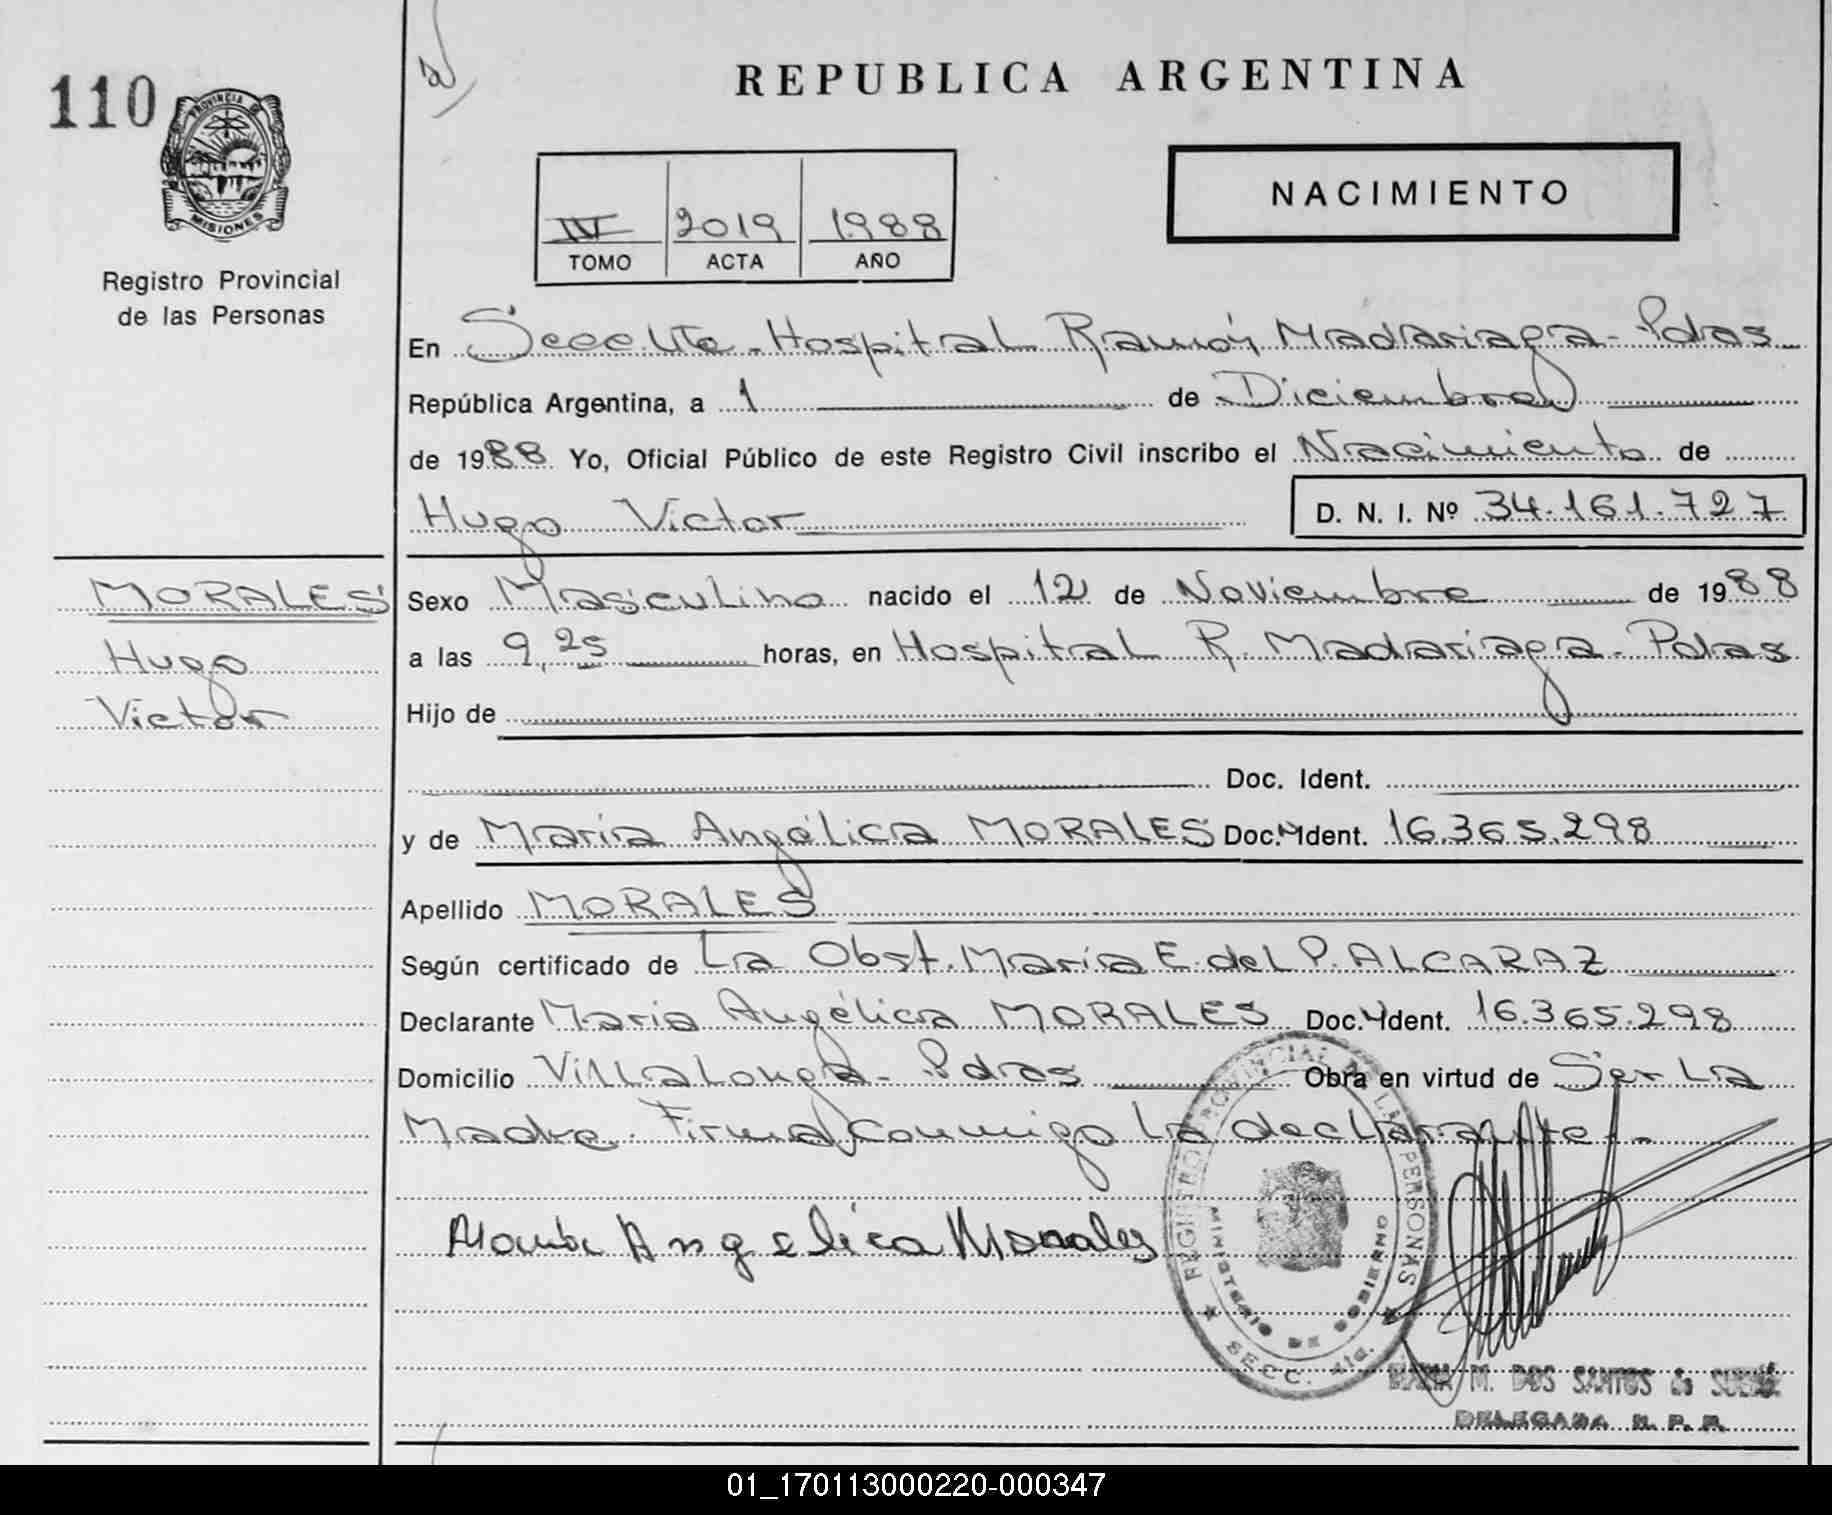 110
REPUBLICA ARGENTINA
PROVINCIA DE
MISIONES
Registro Provincial
de las Personas
NACIMIENTO
IV 2019 1988
TOMO ACTA AÑO
En Secc 4ta - Hospital Ramón Madariaga - Pdas
República Argentina, a 1 de Diciembre
de 1988 Yo, Oficial Público de este Registro Civil inscribo el Nacimiento de
Hugo Victor D. N. I. Nº 34.161.727
MORALES
Hugo
Victor
Sexo Masculino nacido el 12 de Noviembre de 1988
a las 9,25 horas, en Hospital R. Madariaga - Pdas
Hijo de
Doc. Ident.
y de María Angélica MORALES Doc. Ident. 16.365.298
Apellido MORALES
Según certificado de La Obst. María E. del P. ALCARAZ
Declarante Maria Angélica MORALES Doc. Ident. 16.365.298
Domicilio Villalonga - Pdas Obra en virtud de Ser La
Madre. Firma Conmigo la declarante.-
Angelica Morales
REGISTRO PROVINCIAL DE LAS PERSONAS
MINISTERIO DE GOBIERNO
SECC. 4ta.
M. DOS SANTOS de
DELEGADA R. P. P.
01_170113000220-000347